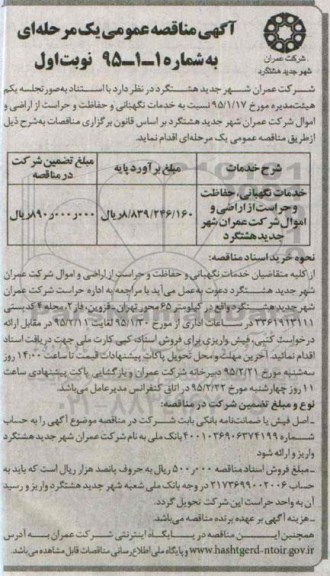 شرکت عمران
شهر جدید هشتگرد
آگهی مناقصه عمومی یک مرحله‌ای
به شماره ۱-۱-۹۵ نوبت اول
شرکت عمران شهر جدید هشتگرد در نظر دارد با استناد به صورتجلسه یکم
هیئت‌مدیره مورخ ۹۵/۱/۱۷ نسبت به خدمات نگهبانی و حفاظت و حراست از اراضی و
اموال شرکت عمران شهر جدید هشتگرد بر اساس قانون برگزاری مناقصات به شرح ذیل
از طریق مناقصه عمومی یک مرحله‌ای اقدام نماید.
شرح خدمات
مبلغ برآورد پایه
مبلغ تضمین شرکت در مناقصه
خدمات نگهبانی، حفاظت
و حراست از اراضی و
اموال شرکت عمران شهر
جدید هشتگرد
۸/۸۳۹/۲۴۶/۱۶۰ریال
۸۹۰٫۰۰۰٫۰۰۰ریال
نحوه خرید اسناد مناقصه:
از کلیه متقاضیان خدمات نگهبانی و حفاظت و حراست از اراضی و اموال شرکت عمران
شهر جدید هشتگرد دعوت به عمل می‌آید با مراجعه به اداره حراست شرکت عمران
شهر جدید هشتگرد واقع در کیلومتر ۶۵ محور تهران-قزوین، فاز ۲، محله ۴ کدپستی
۳۳۶۱۹۱۳۱۱۱ در ساعات اداری از مورخ ۹۵/۱/۳۰ لغایت ۹۵/۲/۱۱ در مقابل ارائه
درخواست کتبی، فیش واریزی برای فروش اسناد، کپی کارت ملی جهت دریافت اسناد
اقدام نمایند. آخرین مهلت و محل تحویل پاکات پیشنهادات قیمت تا ساعت ۱۴:۰۰ روز
سه‌شنبه مورخ ۹۵/۲/۲۱ دبیرخانه شرکت عمران و بازگشایی پاکت پیشنهادی ساعت
۱۱ روز چهارشنبه مورخ ۹۵/۲/۲۲ در اتاق کنفرانس مدیرعامل می‌باشد.
نوع و مبلغ تضمین شرکت در مناقصه:
- اصل فیش یا ضمانت‌نامه بانکی بابت شرکت در مناقصه موضوع آگهی را به حساب
شماره ۴۰۰۱۰۳۶۹۰۶۳۷۴۱۹۹ بانک ملی به نام شرکت عمران شهر جدید هشتگرد
واریز و ارائه شود
- مبلغ فروش اسناد مناقصه ۵۰۰٫۰۰۰ ریال به حروف پانصد هزار ریال است که باید به
حساب ۲۱۷۳۶۹۹۰۰۲۰۰۶ در وجه بانک ملی شعبه شهر جدید هشتگرد واریز و رسید
آن به واحد حراست این شرکت تحویل گردد.
- هزینه آگهی بر عهده برنده مناقصه می‌باشد.
همچنین این مناقصه در پایگاه اینترنتی شرکت عمران به آدرس
www.hashtgerd-ntoir.gov.ir و پایگاه ملی اطلاع‌رسانی مناقصات قابل مشاهده می‌باشد.